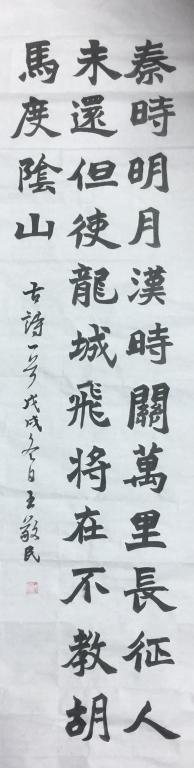 秦時明月漢時關萬里長征人
未還但使龍城飛将在不教胡
馬度陰山
古詩一首戊戌冬日王敬民